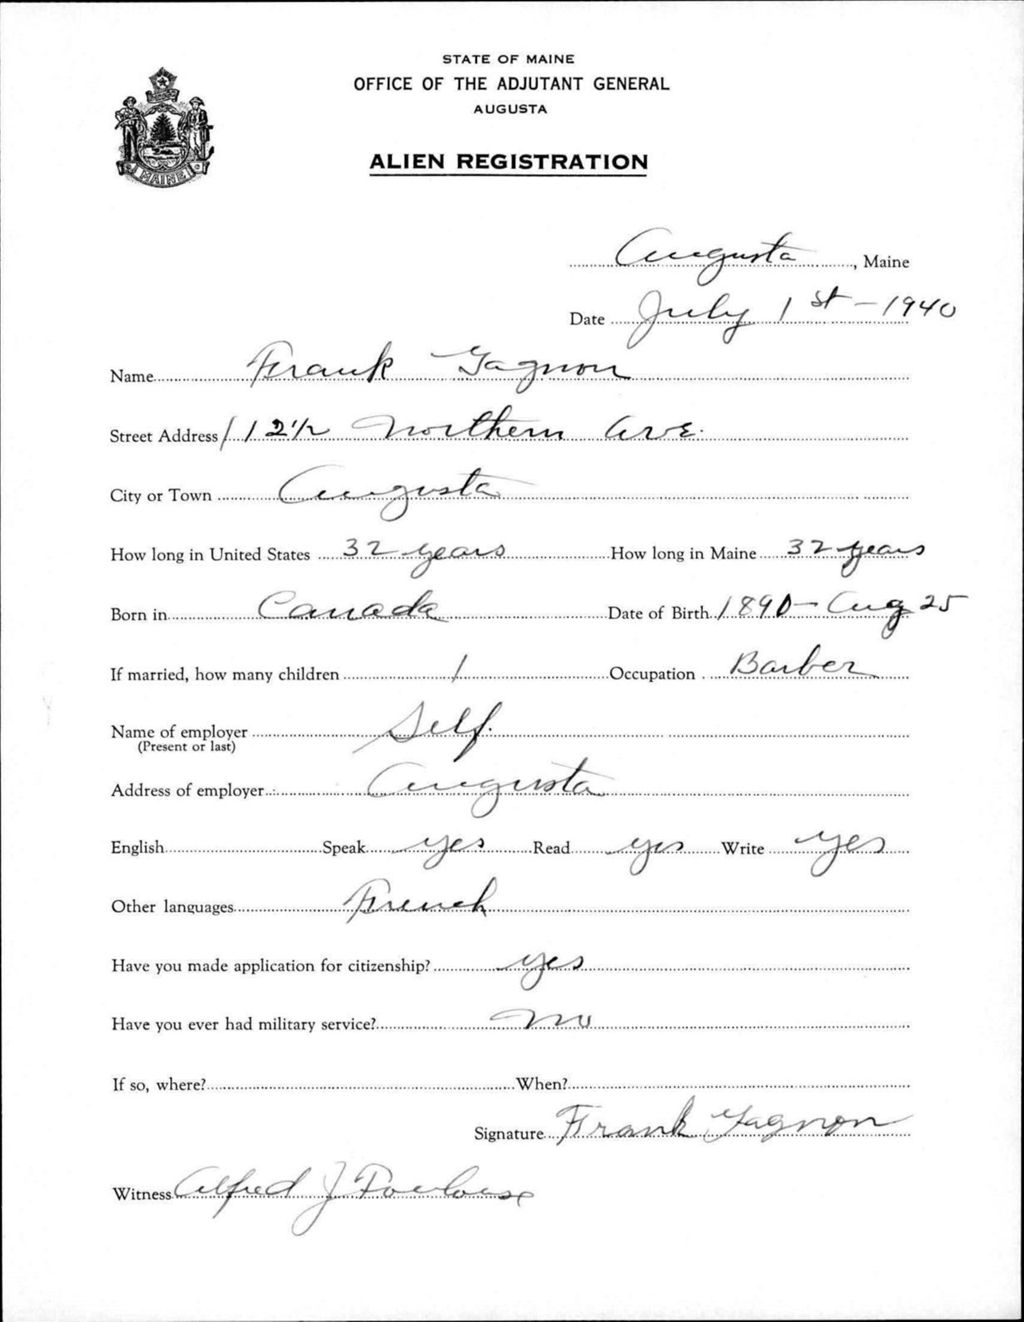 STATE OF MAINE
OFFICE OF THE ADJUTANT GENERAL
AUGUSTA
ALIEN REGISTRATION
MAINE
Augusta, Maine
Date July 1st - 1940
Name Frank Gagnon
Street Address 112 1/2 Northern Ave.
City or Town Augusta
How long in United States 32 years How long in Maine 32 years
Born in Canada Date of Birth 1890 - Aug 25
If married, how many children 1 Occupation Barber
Name of employer Self.
(Present or last)
Address of employer Augusta
English Speak yes Read yes Write yes
Other languages French
Have you made application for citizenship? yes
Have you ever had military service? no
If so, where? When?
Signature Frank Gagnon
Witness Alfred J Poulouse